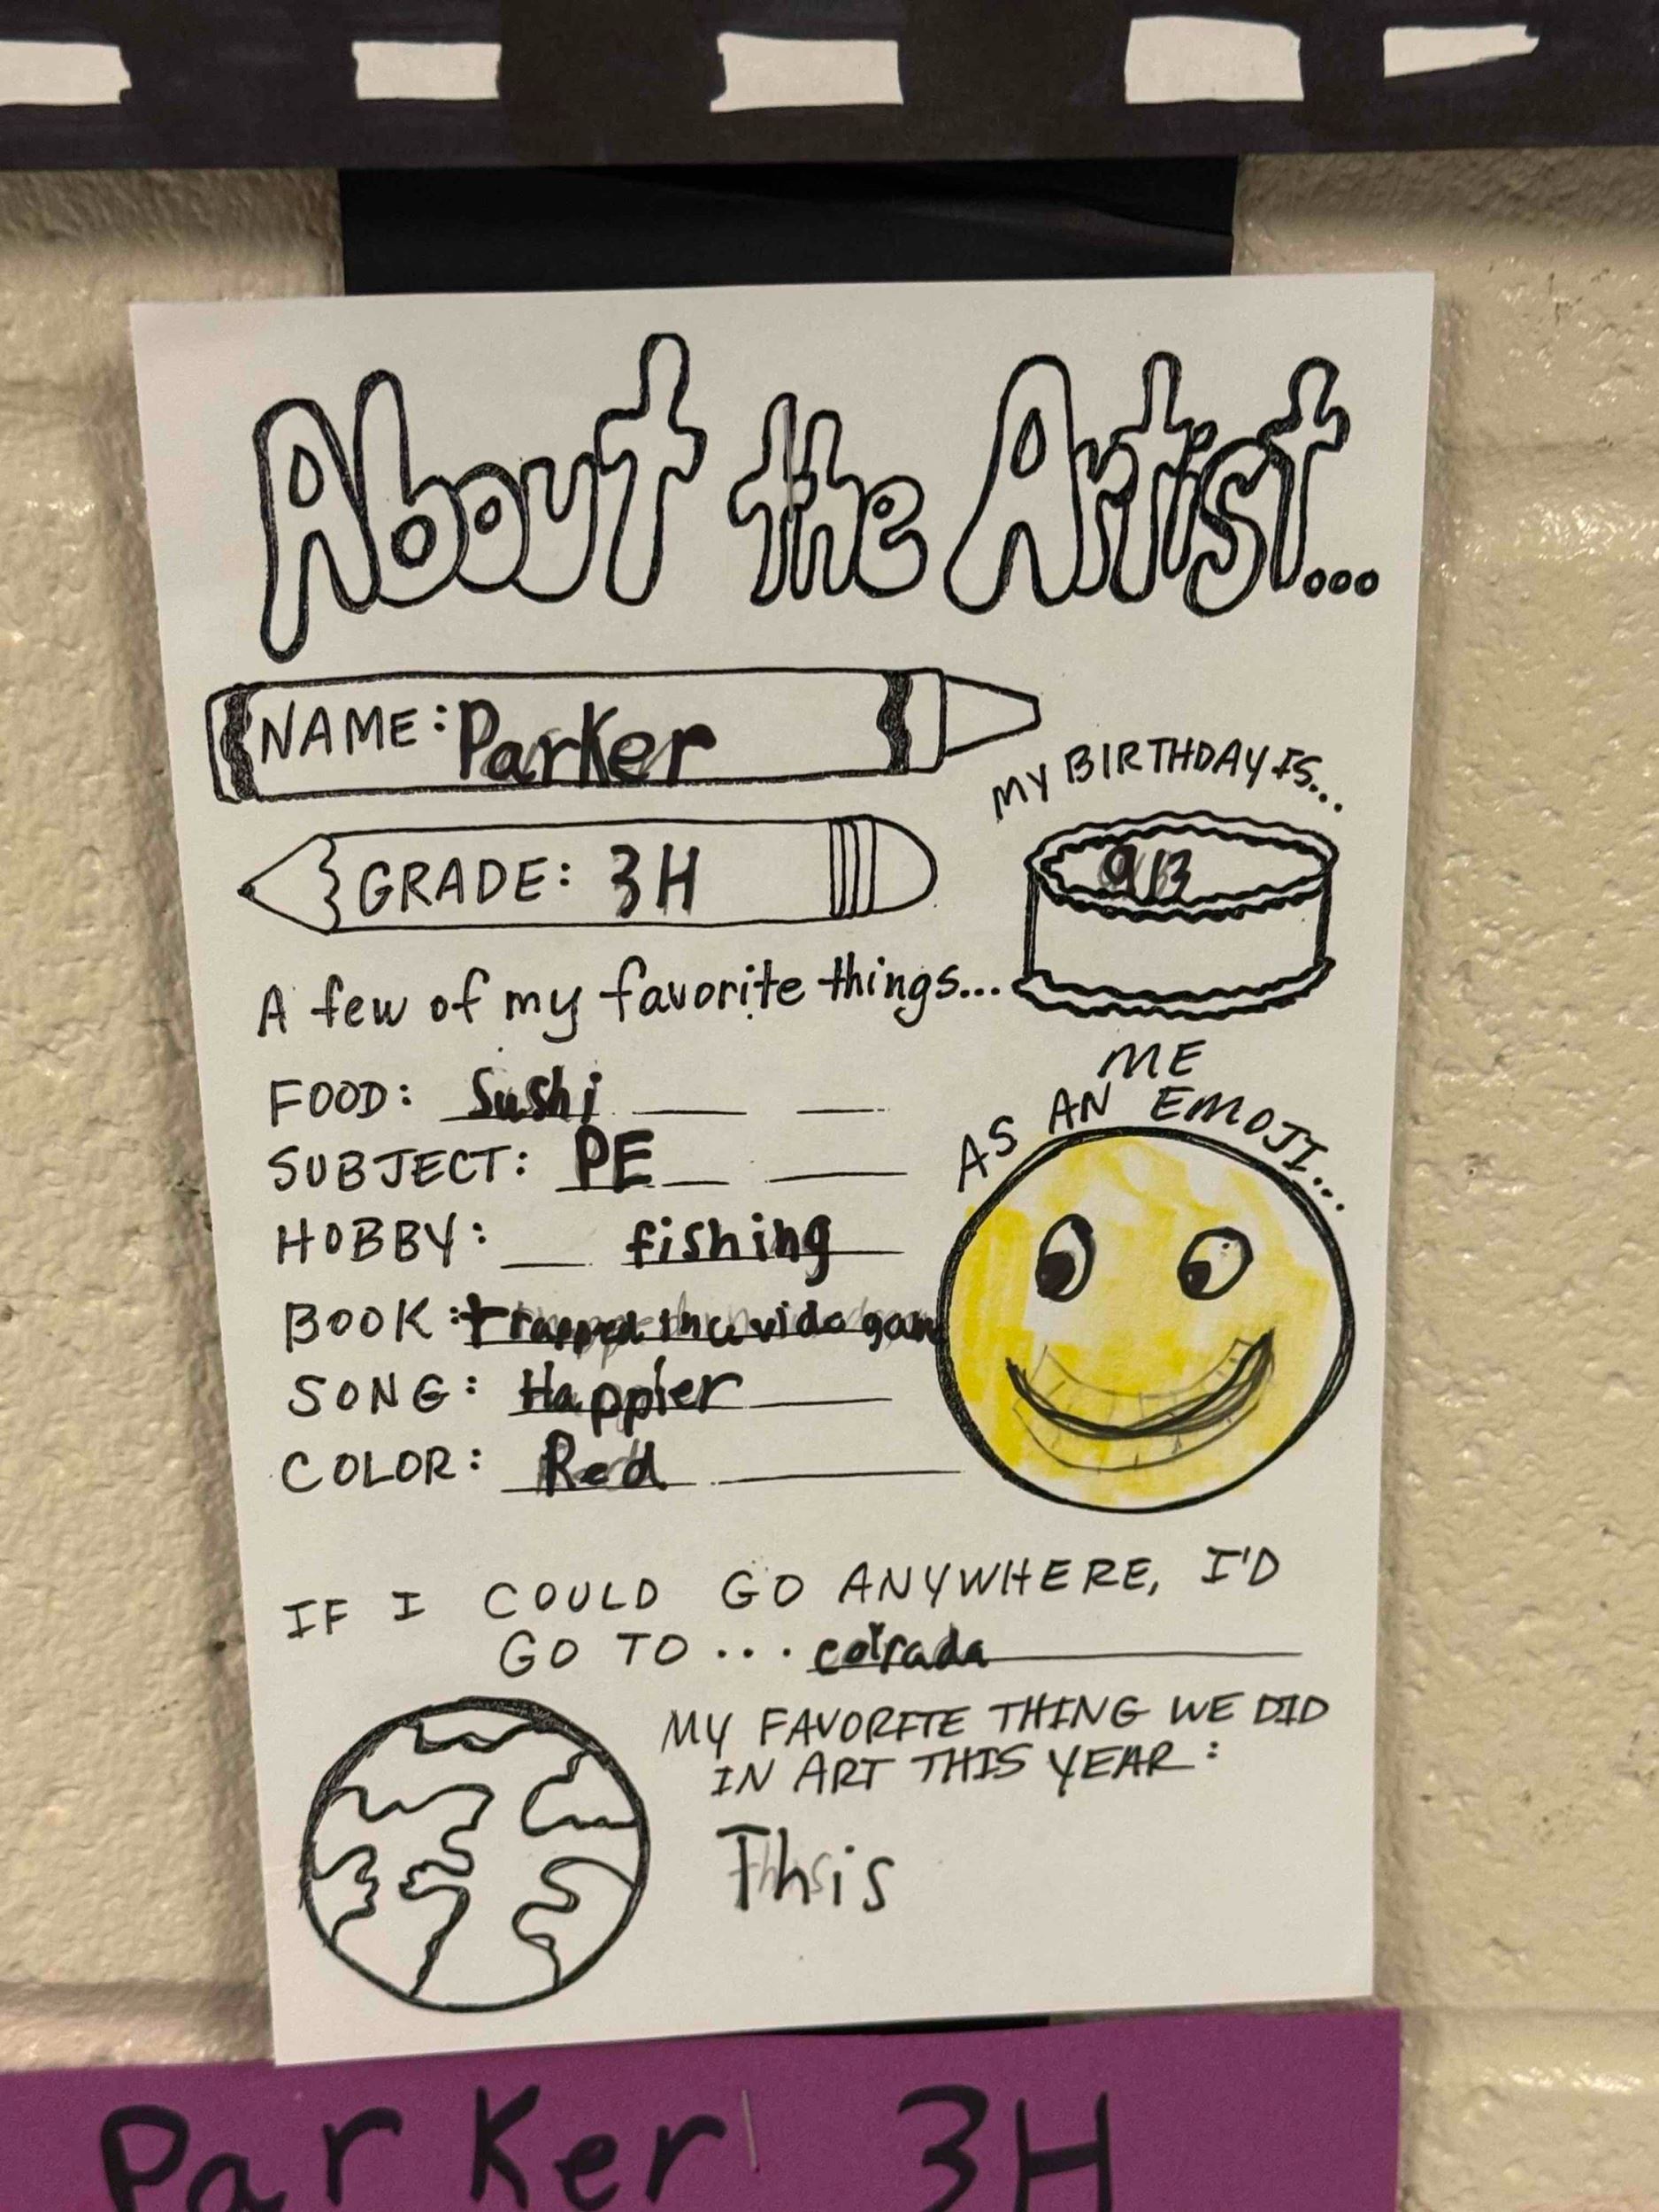 About the Artist...
NAME: Parker
MY BIRTHDAY IS...
913
GRADE: 3H
A few of my favorite things...
FOOD: Sushi
SUBJECT: PE
HOBBY: fishing
BOOK: trapped in a vido gam
SONG: Happier
COLOR: Red
ME
AS AN EMOJI...
IF I COULD GO ANYWHERE, I'D
GO TO... colrada
MY FAVORITE THING WE DID
IN ART THIS YEAR:
This
Parker 3H